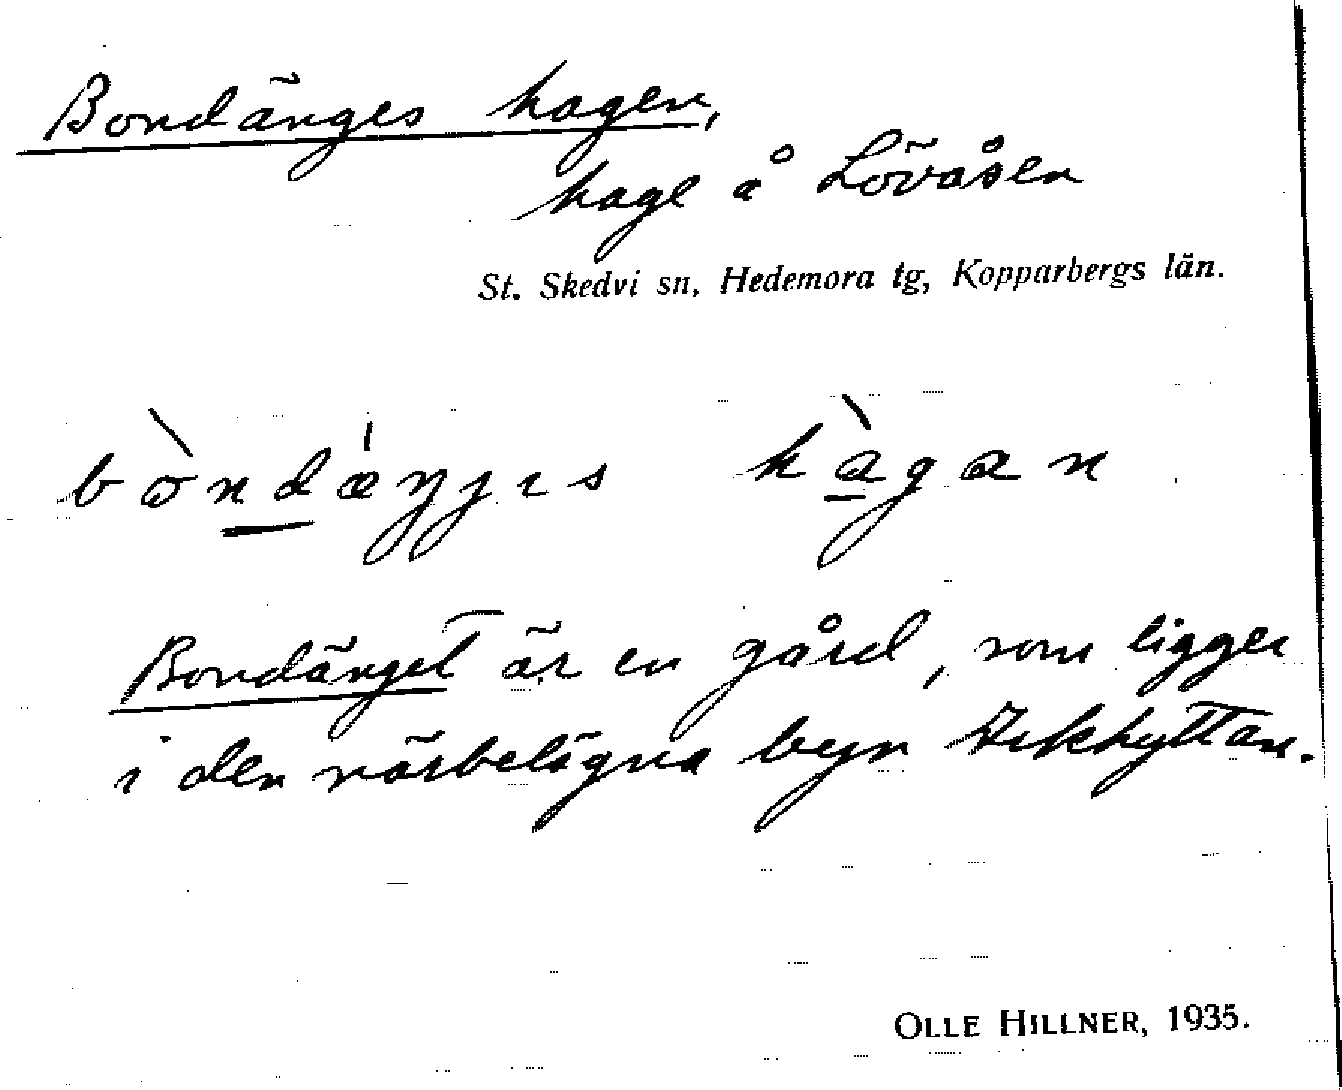 Bondänges hagen,
hage å Lövåsen
St. Skedvi sn, Hedemora tg, Kopparbergs län.
bòndæŋjɩs hàgan
Bondänget är en gård, som ligger
i den närbelägna byn
OLLE HILLNER, 1935.